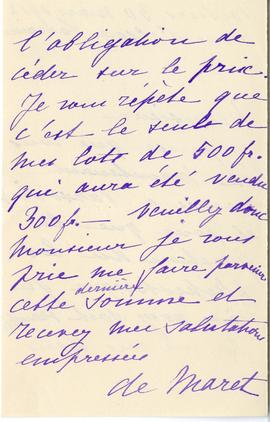 l'obligation de
céder sur le prix.
Je vous répète que
c'est le seule de
mes lots de 500 fr.
qui aura été vendu
300 fr. — veuillez donc
Monsieur je vous
prie me faire parvenir
cette dernière somme et
recevez mes salutations
empressées
de Maret